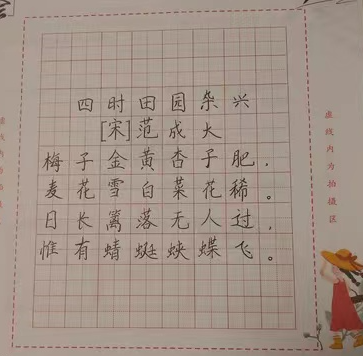 四时田园杂兴
[宋]范成大
梅子金黄杏子肥，
麦花雪白菜花稀。
日长篱落无人过，
惟有蜻蜓蛱蝶飞。
虚线内为拍摄区
虚线内为拍摄区